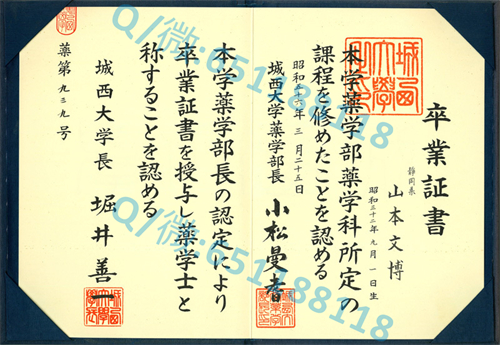 卒業証書
静岡県
山本文博
昭和三十二年九月一日生
本学薬学部薬学科所定の
課程を修めたことを認める
昭和五十六年三月二十五日
城西大学薬学部長
小松曼耆
本学薬学部長の認定により
卒業証書を授与し薬学士と
称することを認める
城西大学長
堀井善一
薬第九三九号
Q/微:651188118
Q/微:651188118